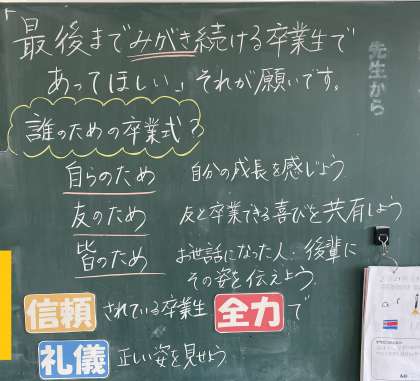 「最後までみがき続ける卒業生で
あってほしい」それが願いです。
先生から
誰のための卒業式？
自らのため 自分の成長を感じよう
友のため 友と卒業できる喜びを共有しよう
皆のため お世話になった人、後輩に
その姿を伝えよう。
信頼されている卒業生 全力で
礼儀正しい姿を見せよう